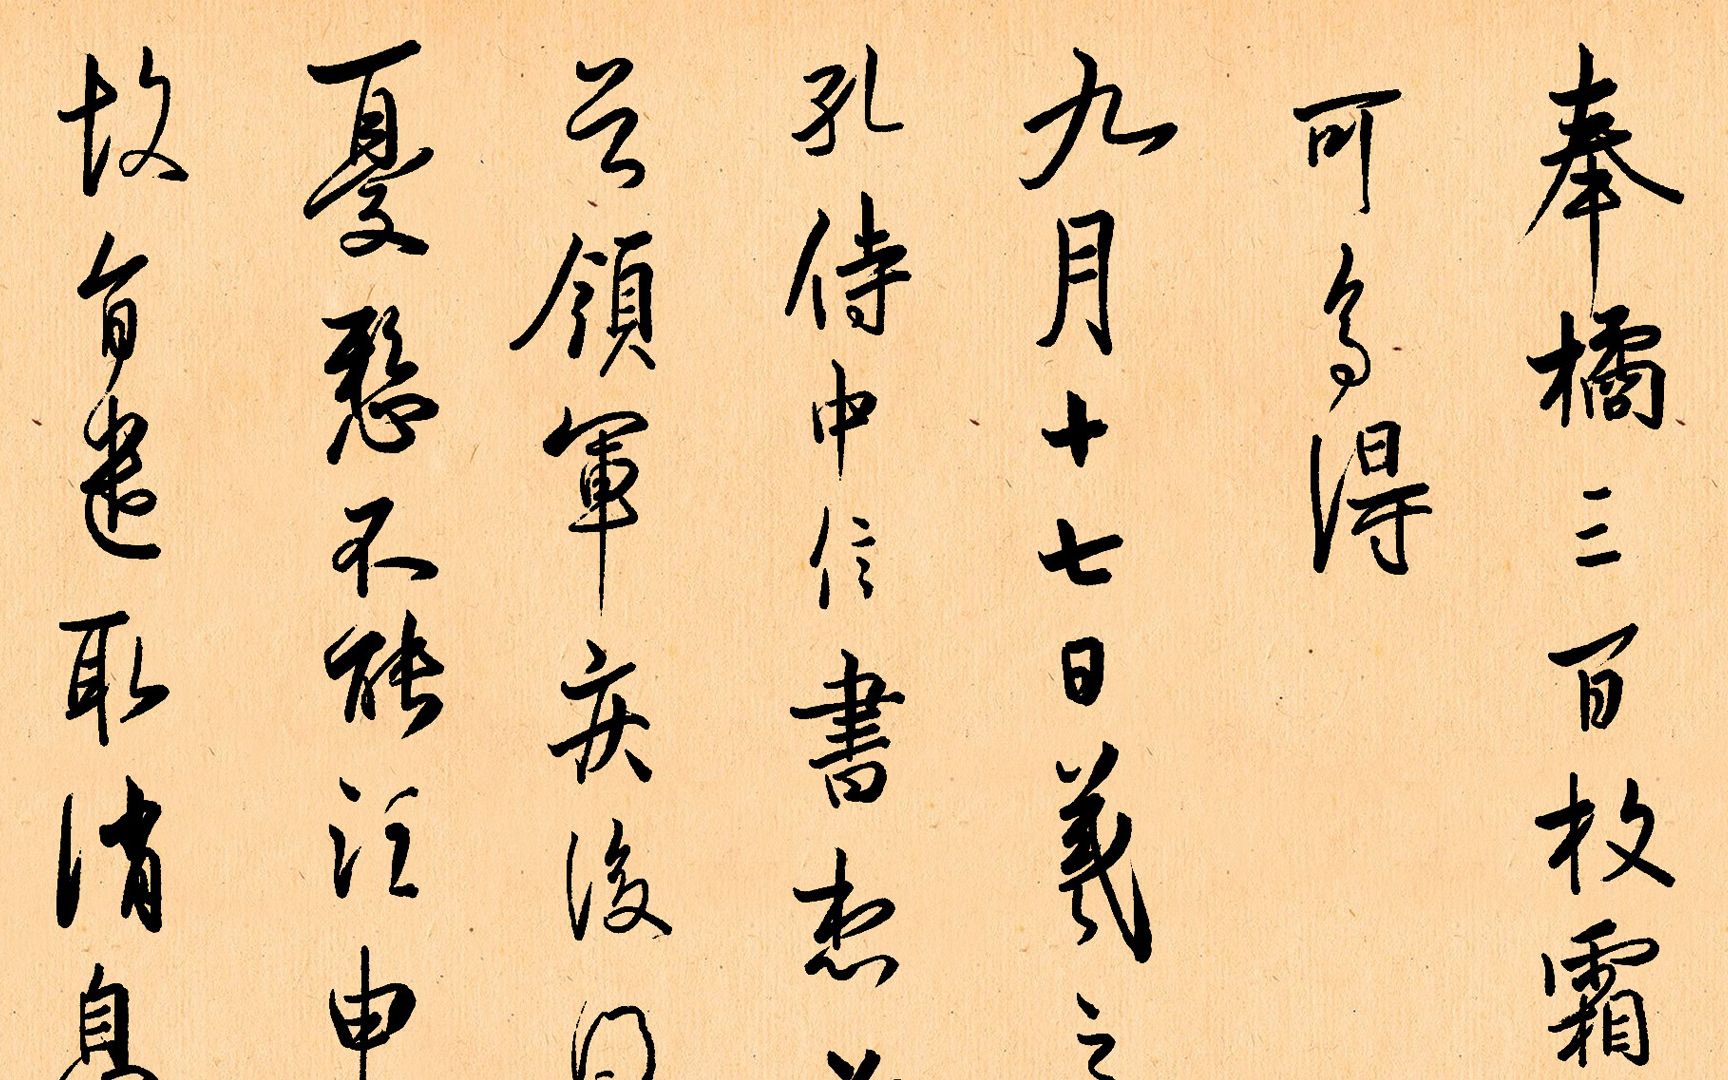 奉橘三百枚霜
可多得
九月十七日羲之
孔侍中信書想
領軍疾後問
憂懸不能申
故旨遣取消息